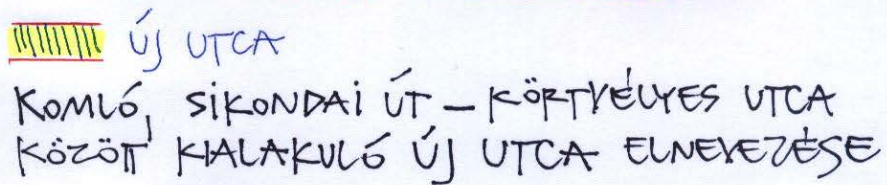 ÚJ UTCA
KOMLÓ, SIKONDAI ÚT – KÖRTVÉLYES UTCA
KÖZÖTT KIALAKULÓ ÚJ UTCA ELNEVEZÉSE